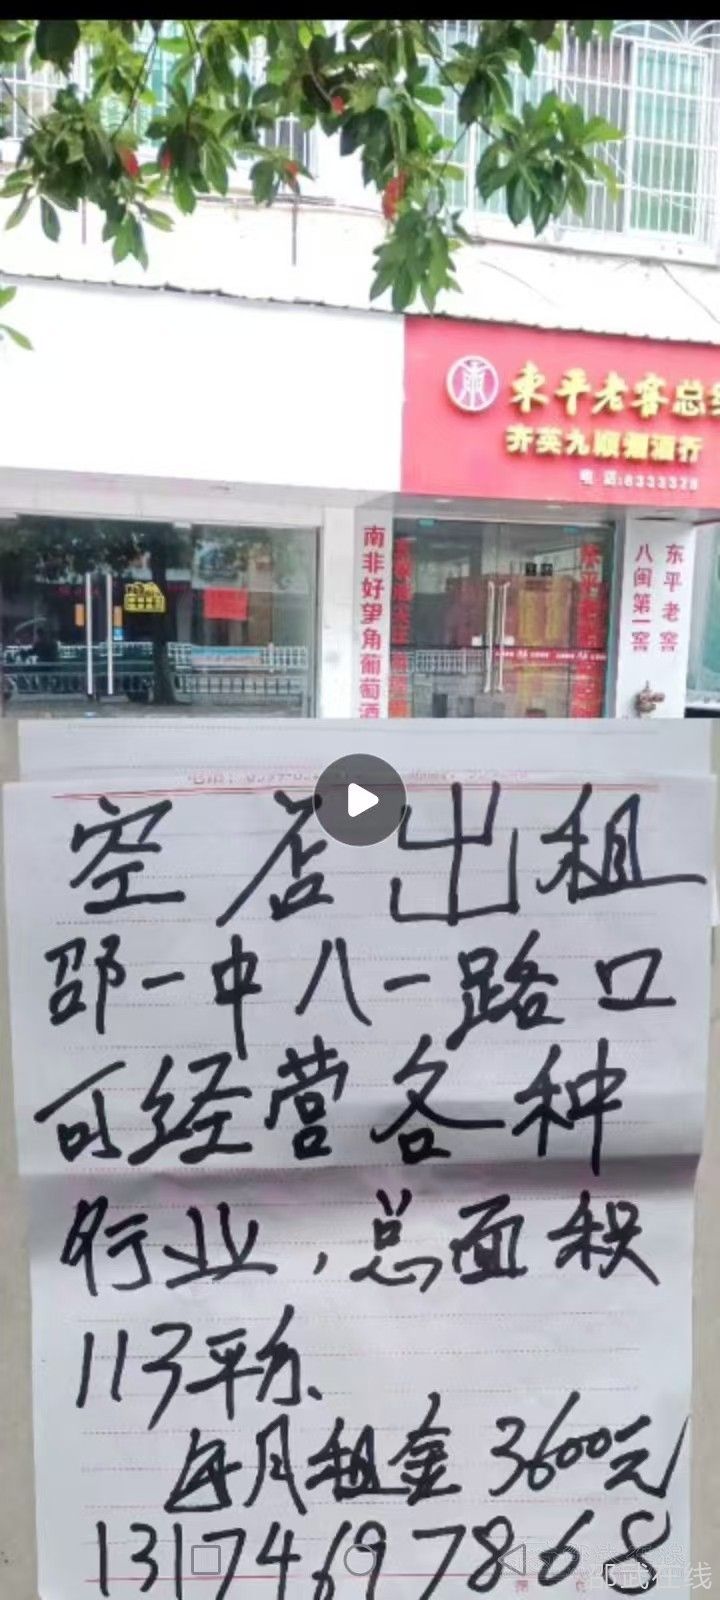 東平老窖总
齐英九顺烟酒行
电 话:6333328
南非好望角葡萄酒
八闽第一窖
东平老窖
空店出租
邵一中八一路口
可经营各种
行业，总面积
113平方、
每月租金3600元
13174697868
邵武在线